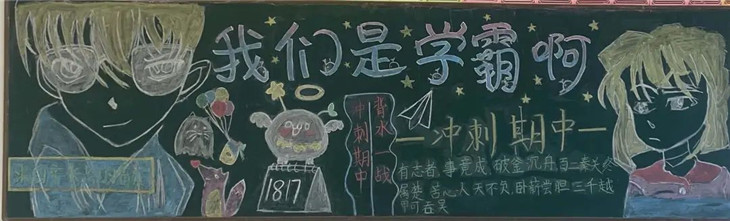 我们是学霸啊
背水一战
冲刺期中
一冲刺期中一
有志者,事竟成,破釜沉舟,百二秦关终
属楚 苦心人天不负卧薪尝胆三千越
甲可吞吴
1817